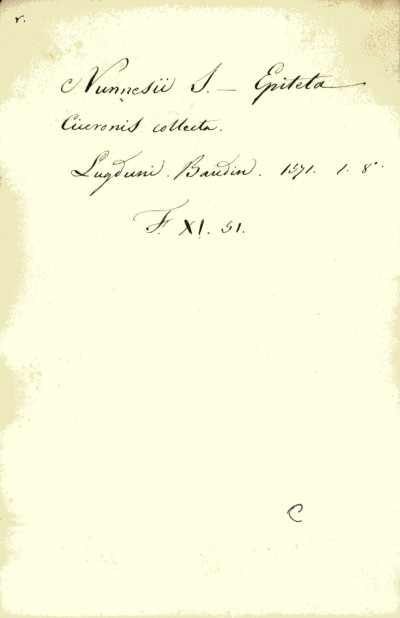 r.
Nunnesii J. — Epiteta
Ciceronis collecta.
Lugduni. Baudin. 1571. 1. 8°.
F. XI. 51.
C